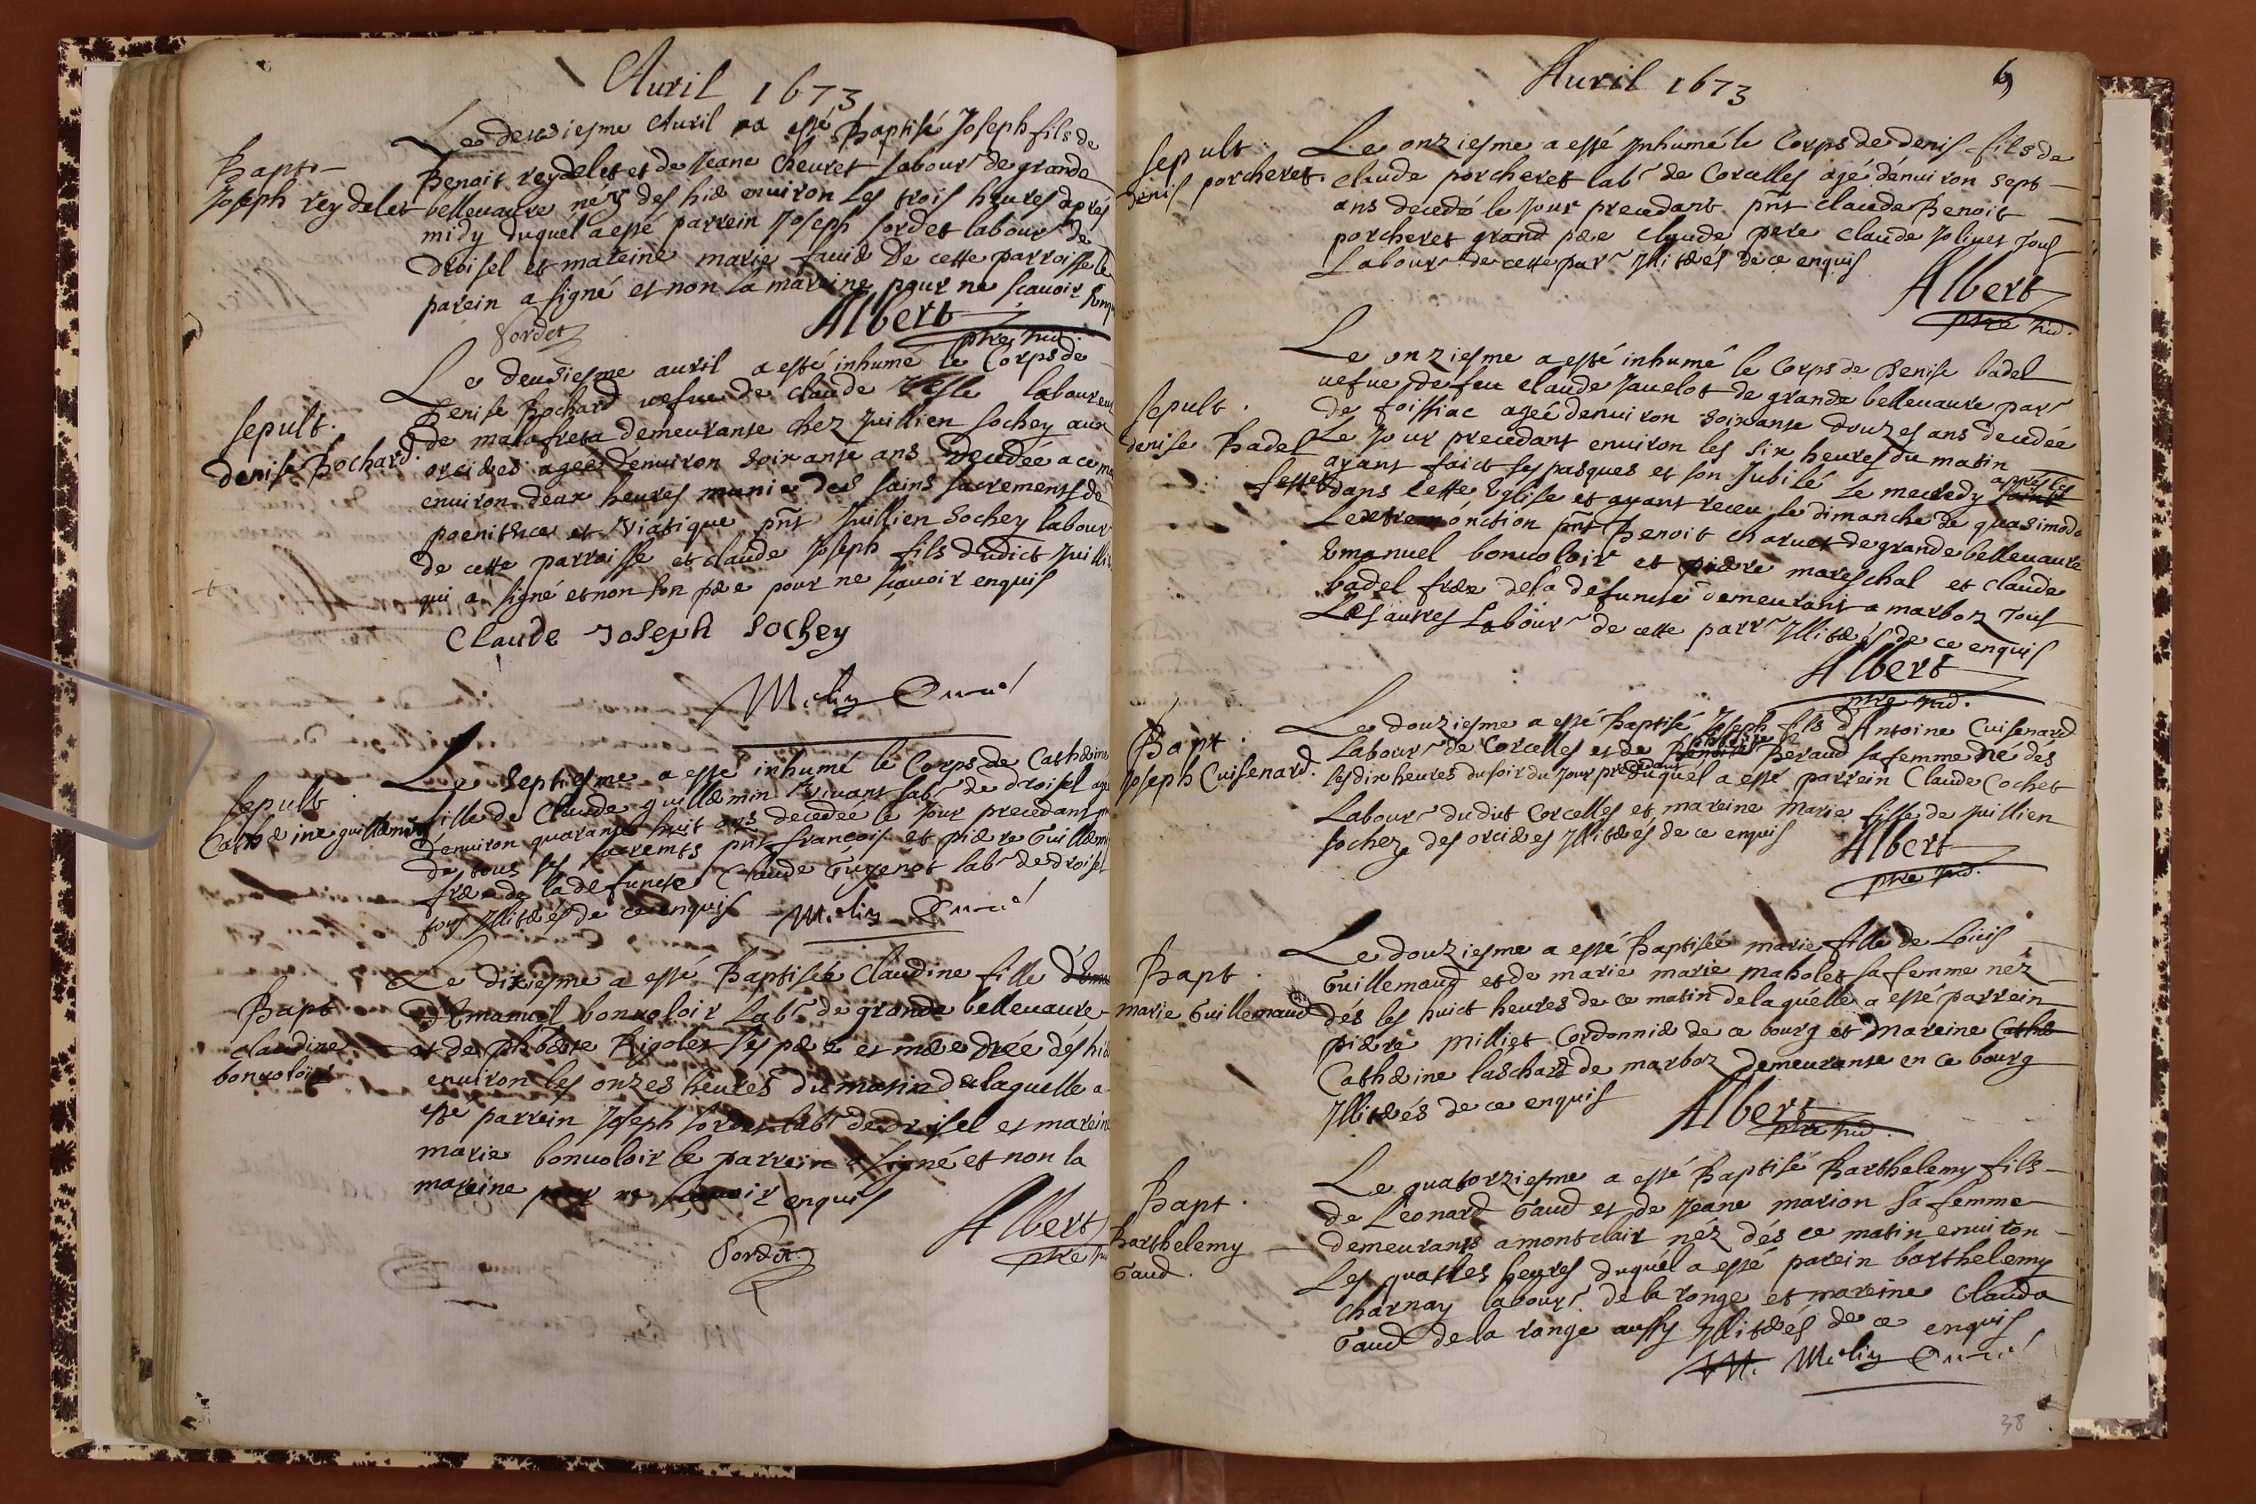 Auril 1673
Bapt
Joseph reydelet
Le deusiesme Auril a esté Baptisé Joseph fils de
Benoit reydelet et de Jeane Cheuret labour de grande
belleuaure néz des hier enuiron Les trois heures aprés
midy duquel a esté parrein Joseph fordet labour de
droisel et mareine marie de cette parroisse le
parein a signé et non la mareine pour ne scauoir
fordet
Albert
ptre
sepult.
denise Bochard.
Le deusiesme auril a esté inhume le Corps de
Denise Bochard uefue de Claude laboureur
de malafreta demeurante chez Juillien sochey aux
orcieres ageé denuiron soixante ans decedée a ce
enuiron deux heures munie des sains sacrements de
poenitence et Viatique pnt Juillien Sochey labour
de cette parroisse et claude Joseph fils dudict Juillien
qui a signé et non son pere pour ne scauoir enquis
Claude Joseph Sochey
Melin Curé
sepult.
Catherine guillemin
Le septiesme a esté inhumé le Corps de Catherine
fille de Claude guillemin Viuant labr de droisel
denuiron quarante huit ans decedée le jour precedant
de tous ses sacremts pnt francois et piere Guillemin
frere de la defuncte Claude Guyenot labr de droisel
tous Illiterés de ce enquis Melin Curé
Bapt
claudine
bonuoloir
Le dixiesme a esté Baptisée Claudine fille
d'Emanuel bonuoloir Labr de grande belleuaure
et de phiberte Rigolet ses pere et mere née dés hier
enuiron les onzes heures du matin de laquelle a
esté parrein Joseph fordet labr de droisel et mareine
marie bonuoloir le parrein a signé et non la
mareine pour ne scauoir enquis
Albert
ptre
fordet
Auril 1673
sepult.
denis porcheret.
Le onziesme a esté Inhumé le Corps de denis fils de
claude porcheret labr de Corcelles agé dénuiron sept
ans decedé le Jour precedant pnt claude Benoit
porcheret grand pere claude pere claude Joliuet Tous
Labours de cette parr Illiterés de ce enquis
Albert
ptre
sepult.
denise Badel
Le onziesme a esté inhumé le Corps de Denise badel
uefue de feu claude Jauelot de grande belleuaure parr
de foissiac ageé denuiron soixante douzes ans decedée
Le Jour precedant enuiron les six heures du matin
ayant faict ses pasques et son Jubilé Le mecredy apres les
festes dans cette Eglise et ayant receu le dimanche de quasimodo
Lextremonction pnt Benoit charuet de grande belleuaure
Emanuel bonuoloir et piere mareschal et claude
badel frere de la defuncte demeurant a marboz Tous
Les autres Labours de cette parr Illiterés de ce enquis
Albert
ptre
Bapt.
Joseph Cuisenard.
Le douziesme a esté Baptisé Joseph fils d'Antoine Cuisenard
Labour de Corcelles et de Beraud sa femme né dés
les dix heures du soir du Jour precedant duquel a esté parrein Claude Cochet
Labour du dict Corcelles et mareine Marie fille de Juillien
sochey des orcieres Illiterés de ce enquis
Albert
ptre
Bapt.
marie Guillemaud
Le douziesme a esté Baptisée marie fille de Louis
Guillemaud et de marie marie maholet sa femme nez
dés les huict heures de ce matin de laquelle a esté parrein
piere Milliet Cordonnier de ce bourg et mareine Cathe
Catherine luschard de marboz demeurante en ce bourg
Illiterés de ce enquis
Albert
ptre
Bapt.
Barthelemy
Gaud.
Le quatorziesme a esté Baptisé Barthelemy fils
de Leonard Gaud et de Jeane marion sa femme
demeurants a montclair néz dés ce matin enuiron
Les quattres heures duquel a esté parein barthelemy
charnay labour de la ronge et mareine Clauda
Gaud de la range aussy Illiterés de ce enquis
Melin Curé
38